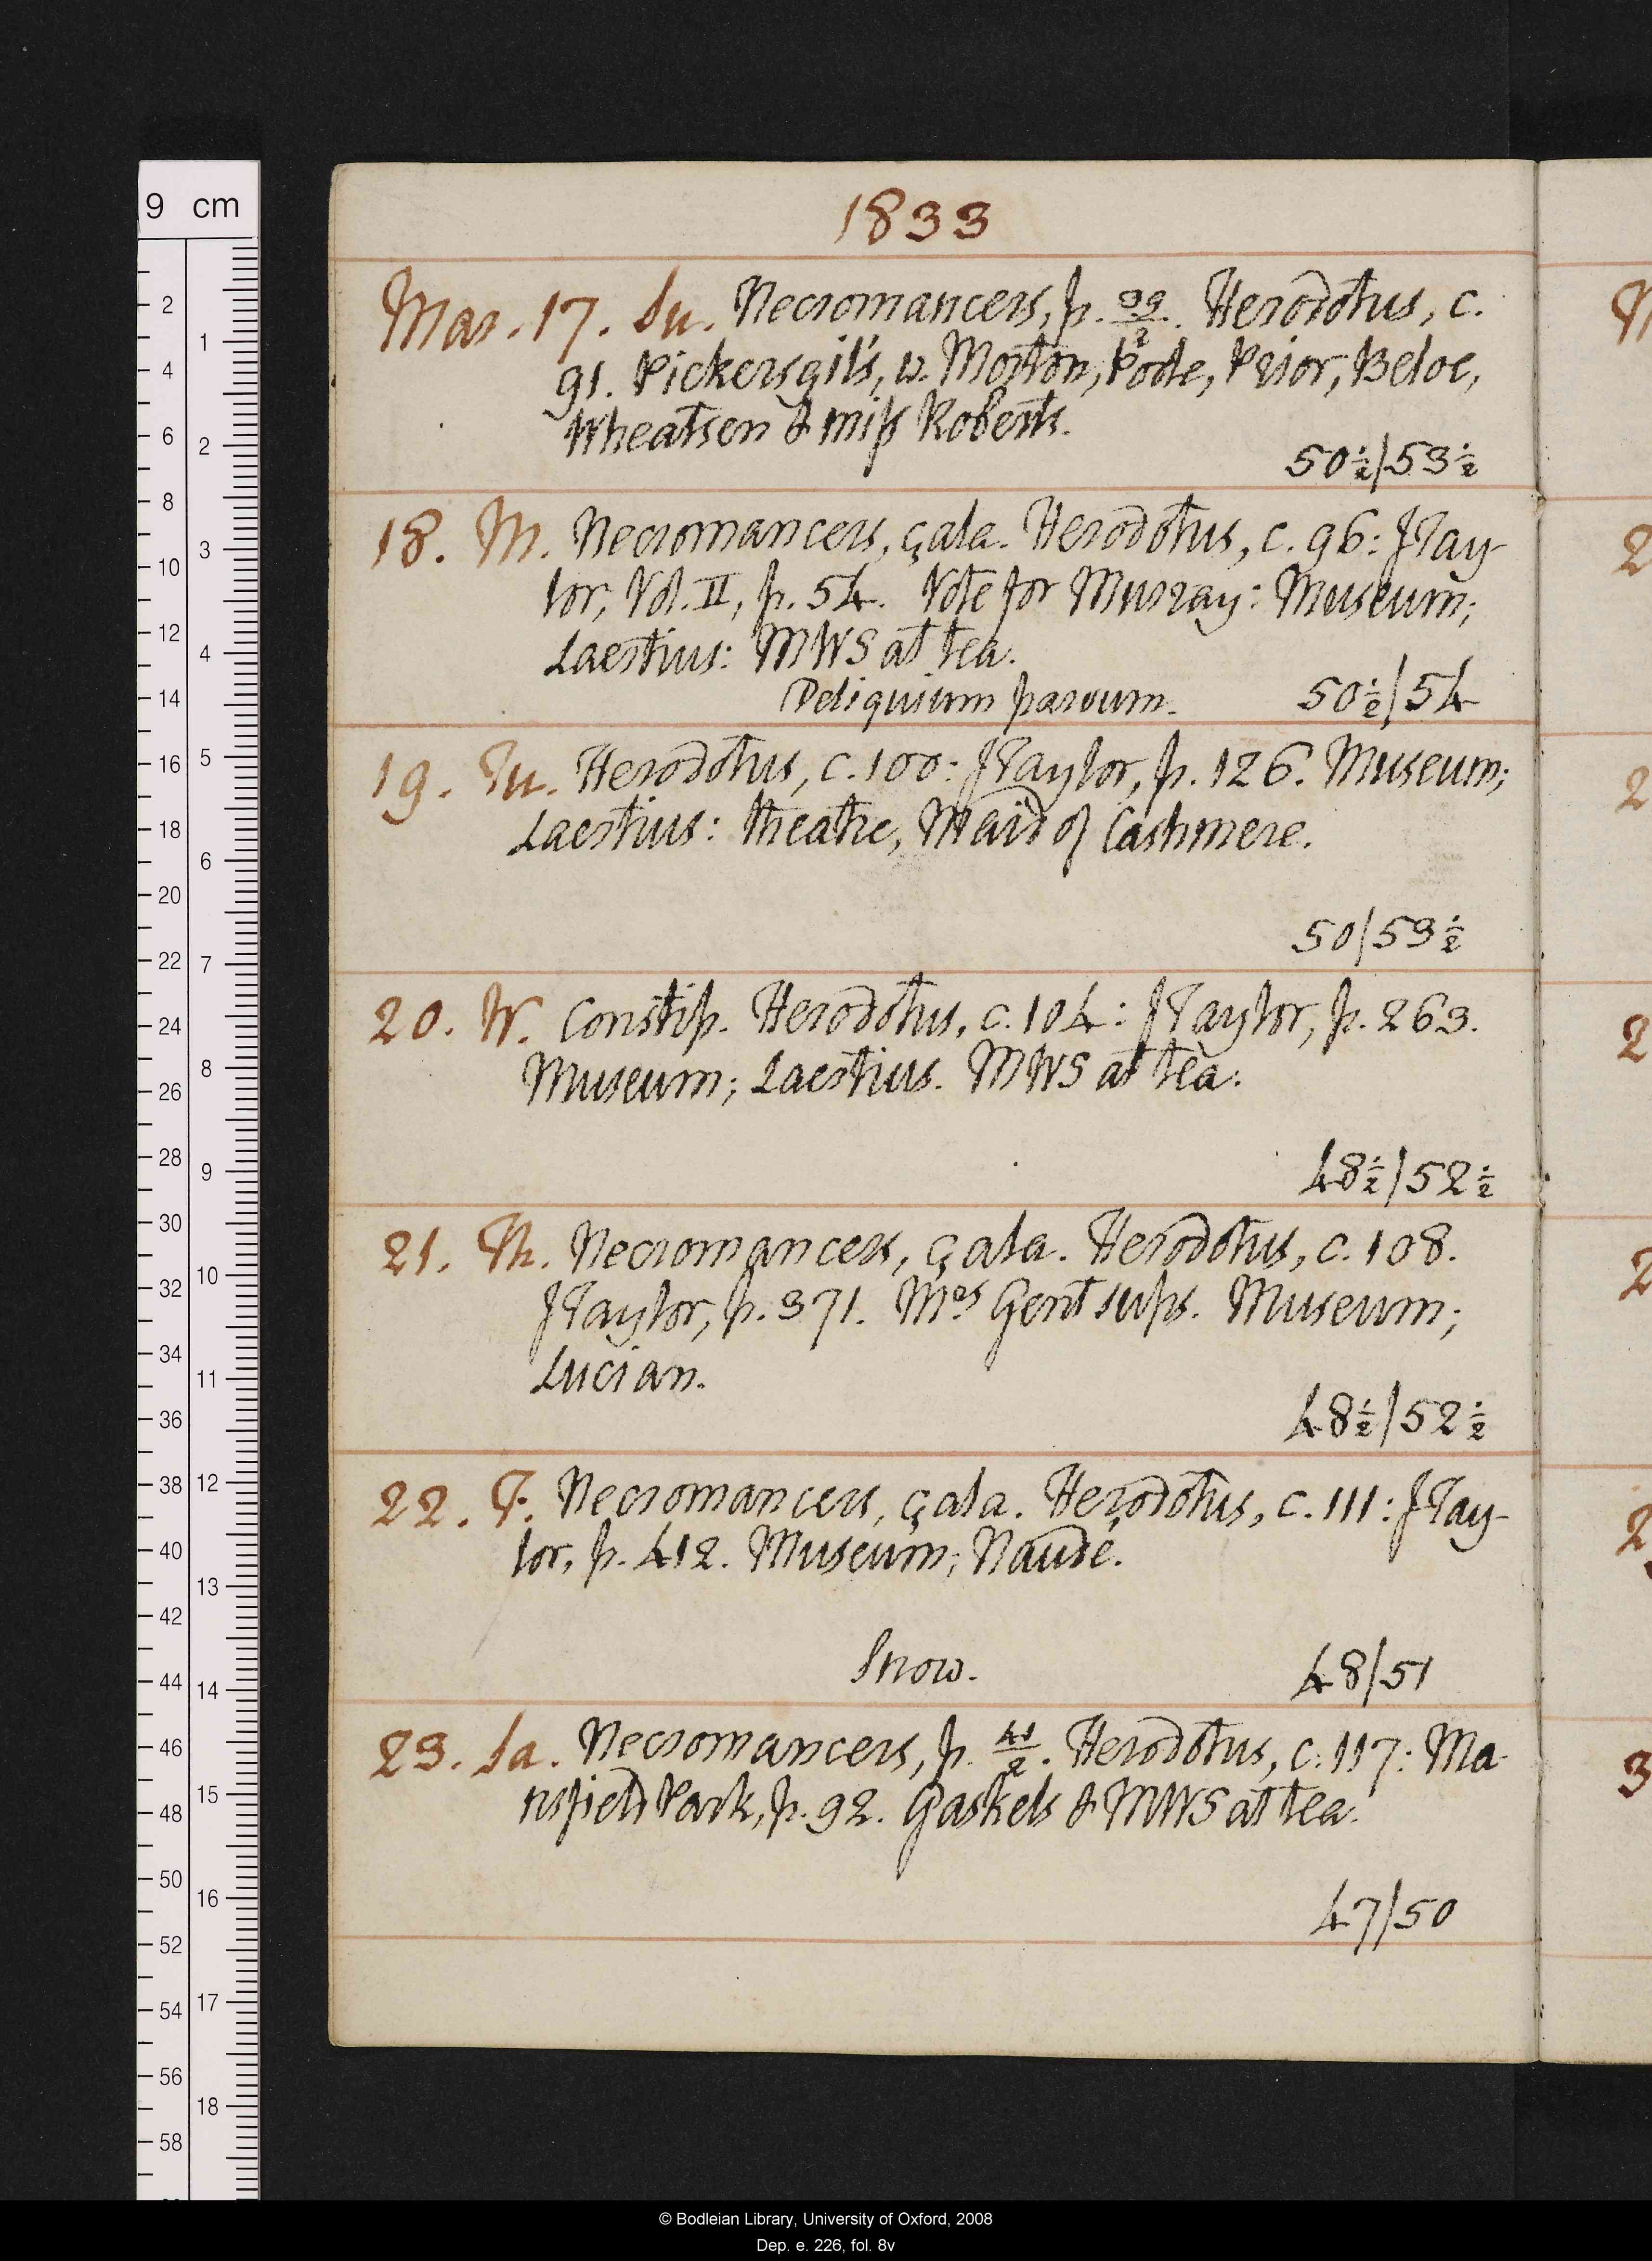 1833
Mar. 17. Su. Necromancers, p. 39/2. Herodotus, c.
91. Pickersgil's, w. Morton, Poole, Prior, Beloe,
Wheatsen & miss Roberts.
50½/53½
18. M. Necromancers, çala. Herodotus, c. 96: JTay-
lor, Vol. II, p. 54. Note for Murray: Museum;
Laertius: MWS at tea.
Deliquium parvum. 50½/54
19. Tu. Herodotus, c. 100: JTaylor, p. 126. Museum;
Laertius: theatre, Maid of Cashmere.
50/53½
20. W. Constip. Herodotus, c. 104: JTaylor, p. 263.
Museum; Laertius. MWS at tea.
48½/52½
21. Th. Necromancers, çala. Herodotus, c. 108.
JTaylor, p. 371. Mrs Gent sups. Museum;
Lucian.
48½/52½
22. F. Necromancers, çala. Herodotus, c. 111: JTay-
lor, p. 412. Museum; Naudé.
Snow. 48/51
23. Sa. Necromancers, p. 41/2. Herodotus, c. 117: Ma-
nsfield Park, p. 92. Gaskels & MWS at tea.
47/50
9 cm
2
4
6
8
10
12
14
16
18
20
22
24
26
28
30
32
34
36
38
40
42
44
46
48
50
52
54
56
58
1
2
3
4
5
6
7
8
9
10
11
12
13
14
15
16
17
18
2
2
2
2
2
3
© Bodleian Library, University of Oxford, 2008
Dep. e. 226, fol. 8v